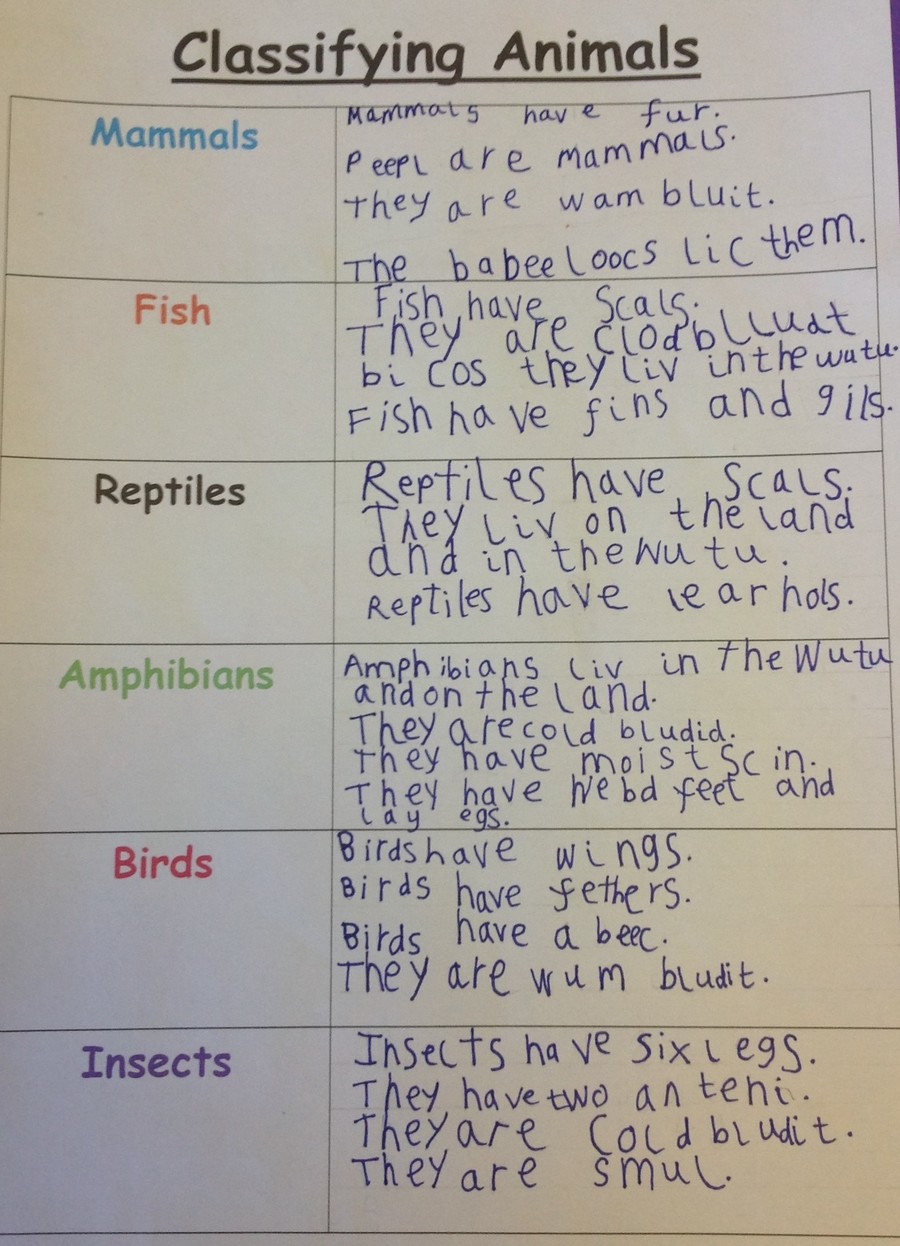 Classifying Animals
Mammals
Mammals have fur.
Peepl are mammals.
They are wam bluit.
The babee loocs lic them.
Fish
Fish have Scals.
They are clod blluat
bi cos they liv in the wutu.
Fish have fins and gils.
Reptiles
Reptiles have Scals.
They liv on the land
and in the wutu.
Reptiles have ear hols.
Amphibians
Amphibians liv in the Wutu
and on the land.
They are cold bludid.
They have moist Scin.
They have Webd feet and
lay egs.
Birds
Birds have wings.
Birds have fethers.
Birds have a beec.
They are wum bludit.
Insects
Insects have six legs.
They have two anteni.
They are cold bludit.
They are smul.